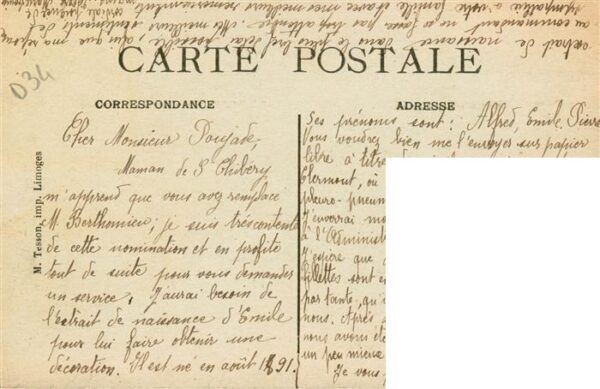 CARTE POSTALE
D34
CORRESPONDANCE
ADRESSE
M. Tesson, imp. Limoges
Cher Monsieur Poujade,
Maman de St Thibéry
m'apprend que vous avez remplacé
M. Berthomieu; je suis très contente
de cette nomination et en profite
tout de suite pour vous demander
un service. J'aurai besoin de
l'extrait de naissance d'Emile
pour lui faire obtenir une
décoration. Il est né en août 1891.
Ses prénoms sont: Alfred, Emile, Pierre
Vous voudrez bien me l'envoyer sur papier
libre à titre
Clermont, où
pleuro-pneum
J'enverrai mo
à l'Administ
J'espère que
billettes sont e
par tante, qu'i
nous. Après
nous avons été
un peu mieux
Je vous
extrait de naissance dans le plus bref délai possible afin que ma
au commandant ne se fasse pas trop attendre. Meilleurs sentiments de
sympathie à votre famille et avec mes meilleurs remerciements